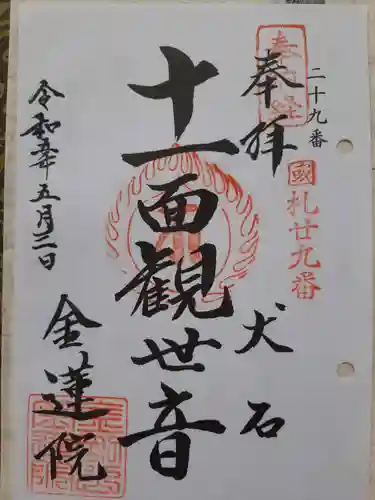 二十九番
奉拝
國札廿九番
犬石
十一面観世音
令和五年五月三日
金蓮院